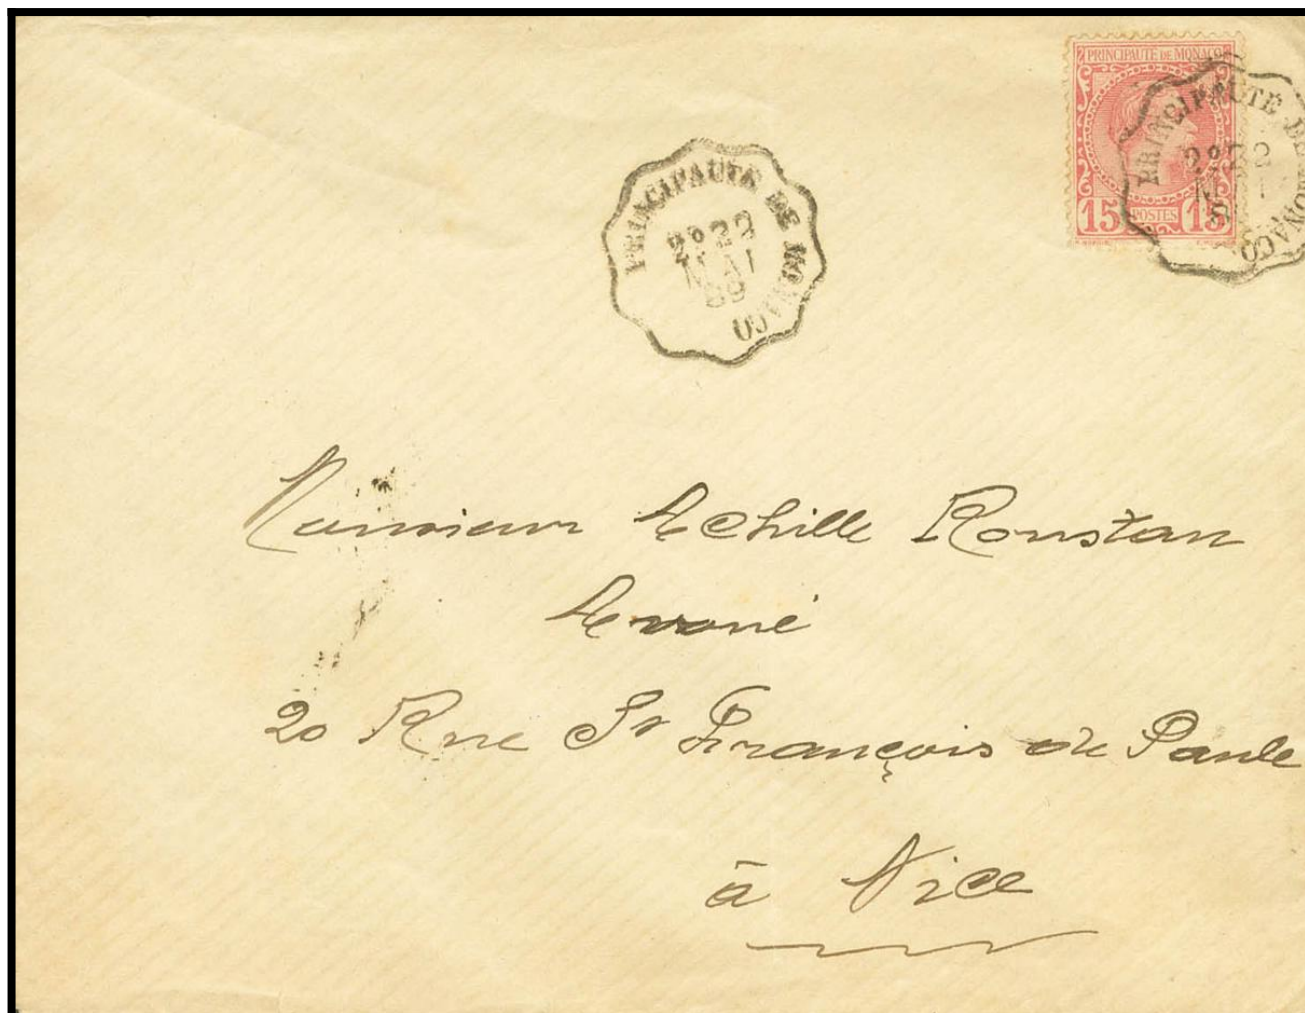 PRINCIPAUTÉ DE MONACO
15 POSTES 15
PRINCIPAUTÉ DE MONACO
PRINCIPAUTÉ DE MONACO
2º 22
MAI
89
Monsieur Achille Roustan
Avoué
20 Rue St François de Paule
à Nice